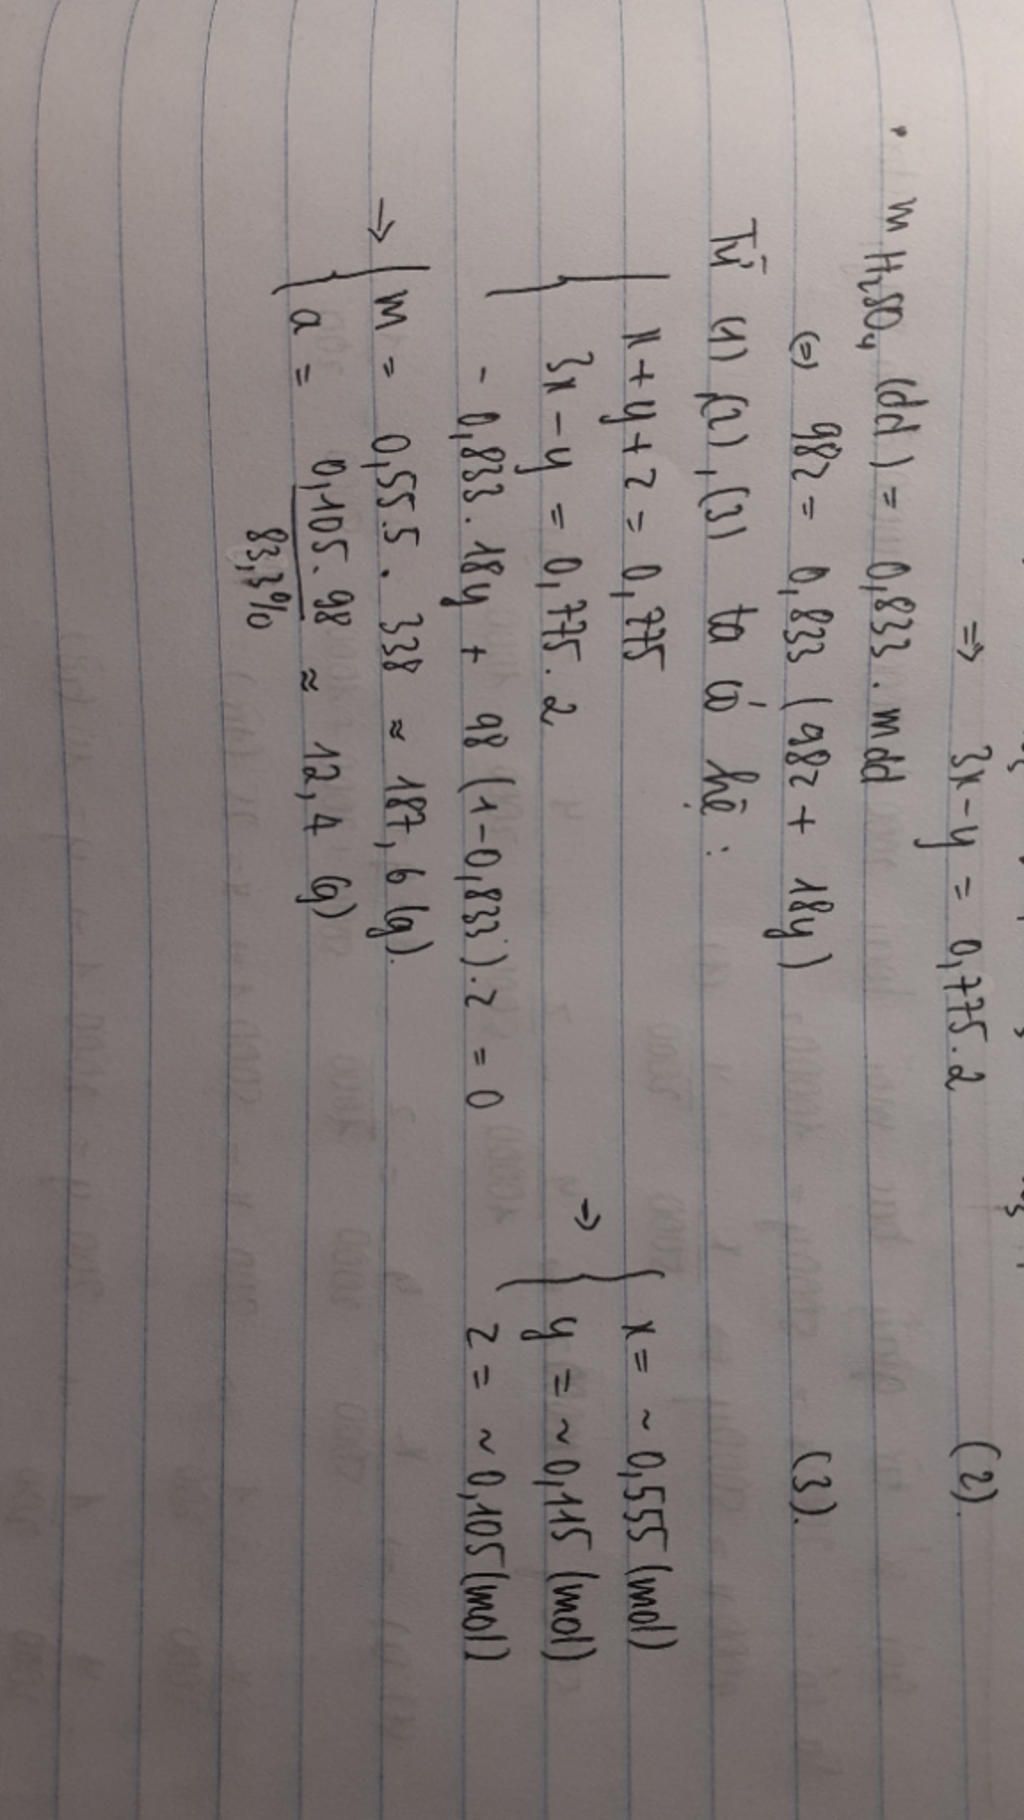 ⇒ 3x - y = 0,775.2 (2).
• m H₂SO₄ (dd) = 0,833. mdd
(=) 98z = 0,833 (98z + 18y) (3).
Từ (1) (2), (3) ta có hệ :
{ x + y + z = 0,775
3x - y = 0,775.2
- 0,833. 18y + 98 (1-0,833).z = 0
→ { x = ~ 0,555 (mol)
y = ~ 0,115 (mol)
z = ~ 0,105 (mol)
→ { m = 0,555. 338 ≈ 187,6 (g).
a = 0,105. 98 / 83,3% ≈ 12,4 (g)